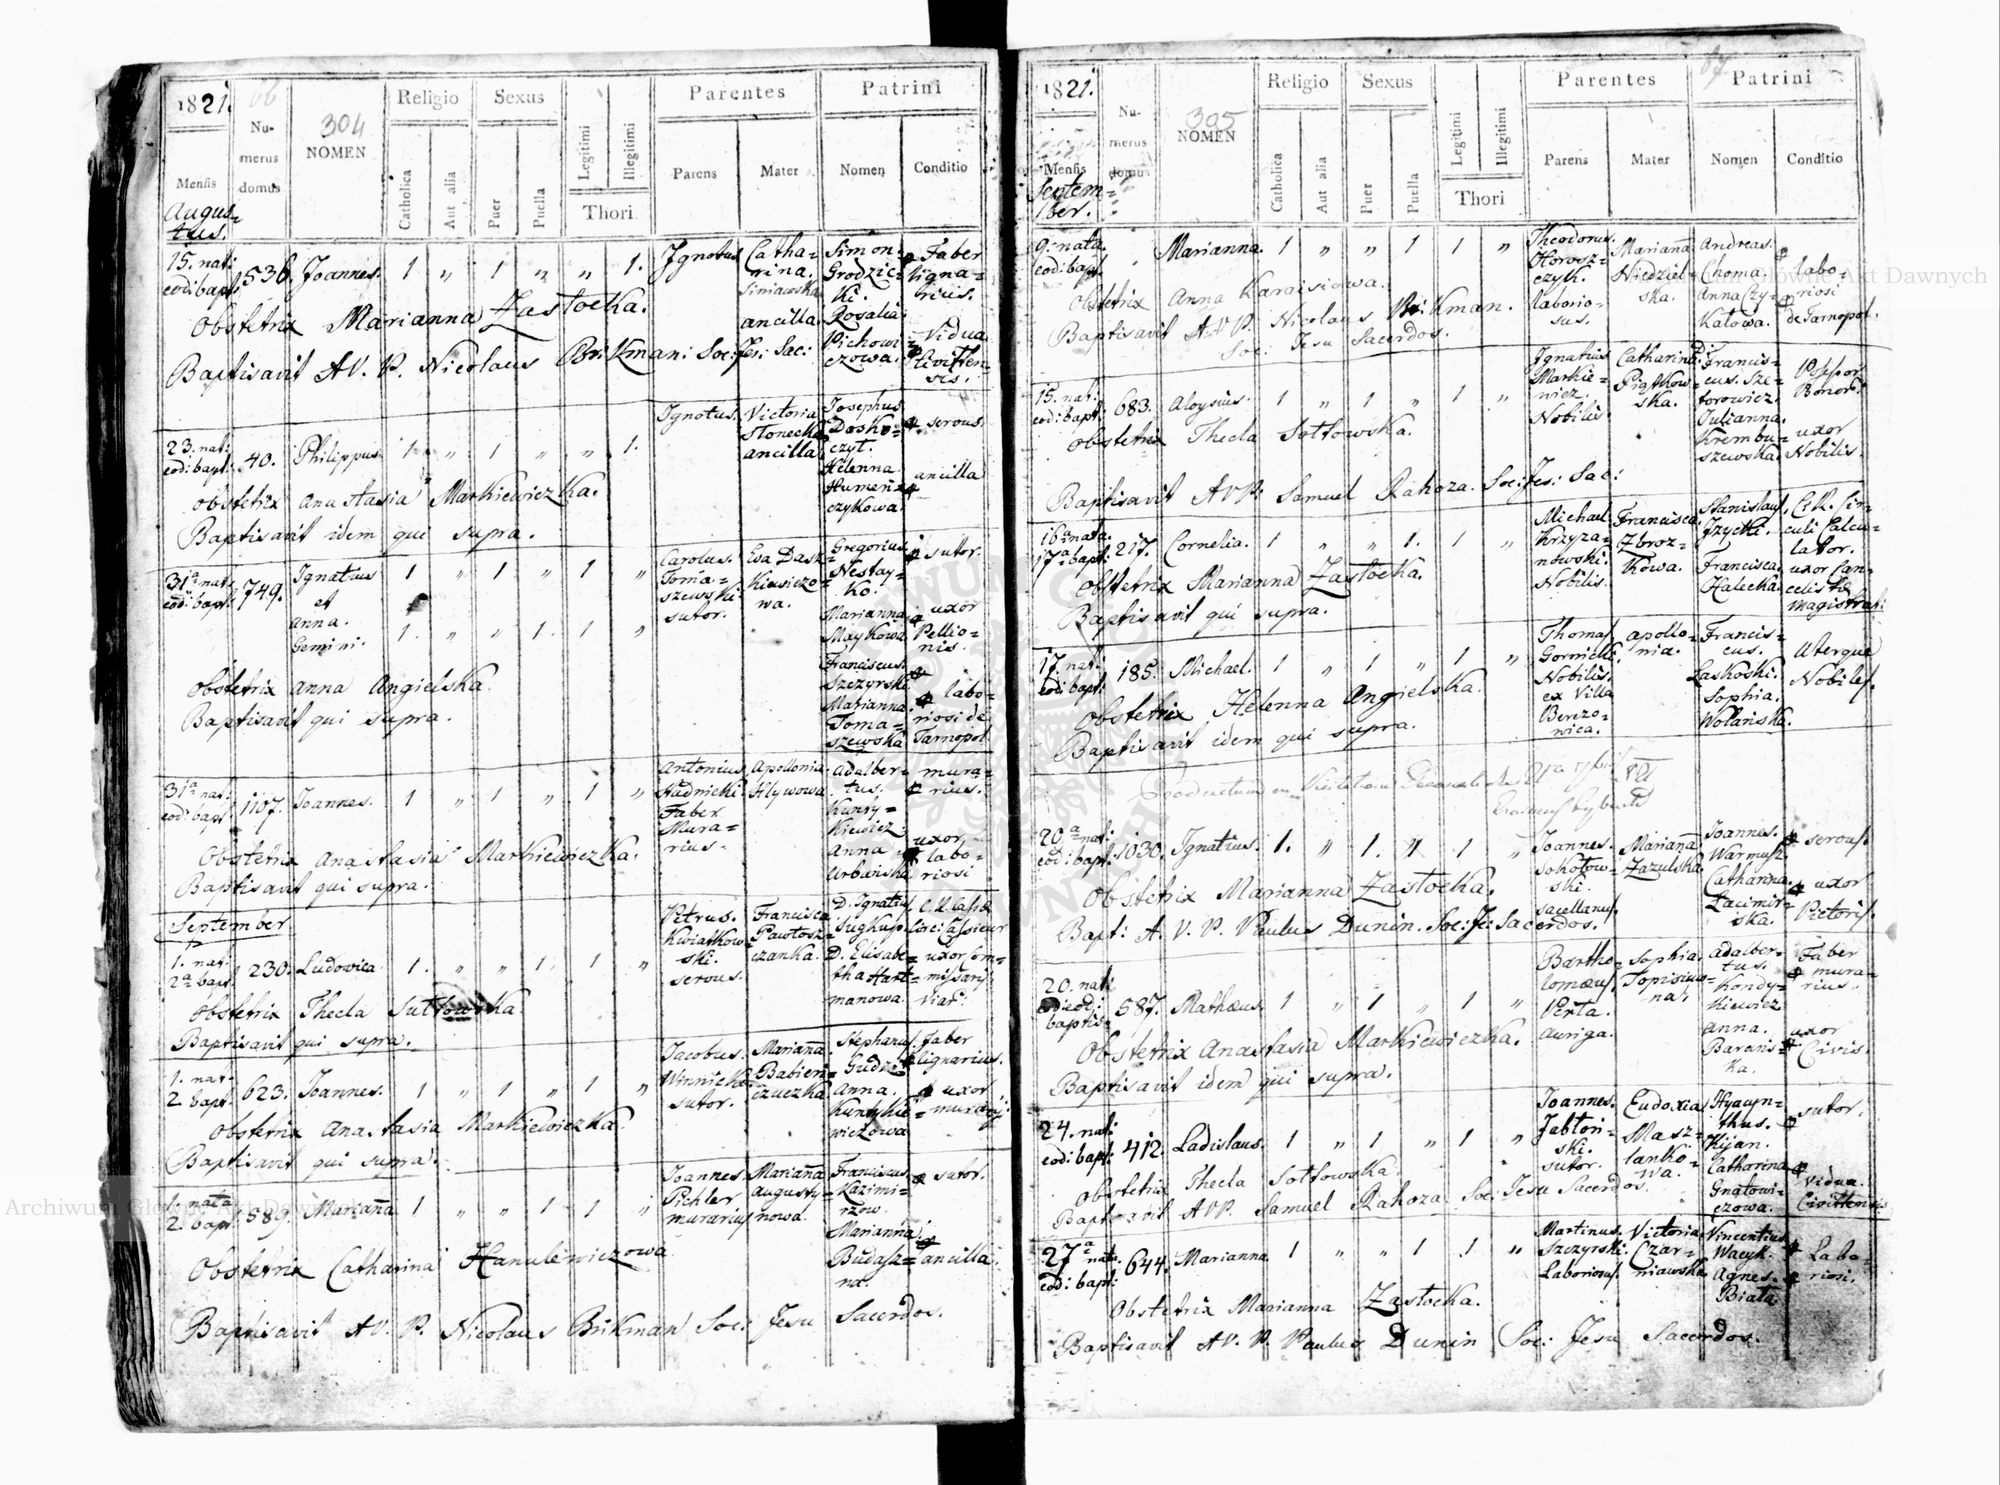 1821.
66
Numerus domus
304
NOMEN
Religio
Sexus
Parentes
Patrini
Mensis
Catholica
Aut alia
Puer
Puella
Legitimi
Illegitimi
Thori
Parens
Mater
Nomen
Conditio
Augus=
tus.
15. nat:
eod: bapt:
1536. Joannes. 1 " 1 " " 1.
Ignotus
Catha=
rina
Siniawska
ancilla
Simon
Grodzic=
ki.
Rosalia
Pichowi=
czowa.
Faber
ligna=
rius.
Vidua
Civitten=
sis.
Obstetrix Marianna Zastocka.
Baptisavit A.V.P. Nicolaus Brikman: Soc: Jes: Sac:
23. nat:
eod: bapt:
40. Philippus 1 " 1 " " 1.
Ignotus.
Victoria
Stonecka
ancilla
Josephus
Dosko=
czyt.
Helenna
Humeñ=
czykowa
servus.
ancilla
Obstetrix Anastasia Markiewiczka.
Baptisavit idem qui supra.
31ª nat:
eod: bapt:
749. Ignatius 1 " 1 " 1 "
et
Anna. 1. " " 1. 1 "
Gemini.
Carolus.
Toma=
szewski
sutor.
Eva Dasz=
kiewiczo=
wa.
Gregorius
Nestay=
ko.
Marianna
Maykowa
Franciscus.
Szczyrski
Marianna
Toma=
szewska
sutor.
uxor
Pellio=
nis.
labo=
riosi de
Tarnopol
Obstetrix Anna Angielska.
Baptisavit qui supra.
31ª nat:
eod: bapt:
1107. Joannes. 1 " 1 " 1 "
Antonius
Hudnicki
Faber
Mura=
rius.
Apollonia
Hlywowa
Adalber=
tus.
Kunty=
kiewicz
Anna
Urbańska
mura=
rius.
uxor
labo=
riosi
Obstetrix Anastasia Markiewiczka.
Baptisavit qui supra.
September
1. nat:
2ª bapt:
1230. Ludovica 1. " " 1. 1 "
Petrus.
Kwiatkow=
ski.
servus.
Francisca
Pawłosz=
czanka.
D. Ignatius
D. Elisabe=
tha Hart=
manowa
uxor Com=
missarij
Viar:
Obstetrix Thecla Sułtowska.
Baptisavit qui supra.
1. nat:
2. bapt:
623. Joannes. 1 " 1 " 1 "
Jacobus.
Winnicki
sutor.
Mariaña
Babien=
czuczka
Stephanus.
Gudz
Anna.
Kuntykie=
wiczowa
Faber
lignarius.
uxor
murarij.
Obstetrix Anastasia Markiewiczka.
Baptisavit qui supra.
1. nata
2. bapt:
589. Mariaña 1 " " 1 1 "
Joannes
Pichler
murarius
Mariaña
Augusty=
nowa.
Franciscus
Kazimi=
rzow.
Marianna
Budasz=
na.
sutor.
ancilla.
Obstetrix Catharina Hanulewiczowa
Baptisavit A.V.P. Nicolaus Brikman Soc: Jesu Sacerdos.
1821.
Numerus domus
305
NOMEN
Religio
Sexus
Parentes
67
Patrini
Mensis
Catholica
Aut alia
Puer
Puella
Legitimi
Illegitimi
Thori
Parens
Mater
Nomen
Conditio
Septem=
ber.
9. nata.
eod: bapt:
" Marianna. 1 " " 1 1 "
Theodorus.
Horosz=
czyk.
laborio=
sus.
Mariaña
Niedziel=
ska.
Andreas.
Choma.
Anna Czy=
katowa.
labo=
riosi
de Tarnopol.
Obstetrix Anna Karaisiowa.
Baptisavit A.V.P. Nicolaus Brikman.
Soc: Jesu Sacerdos.
15. nat:
eod: bapt:
683. Aloysius. 1 " 1 " 1 "
Ignatius
Markie=
wicz.
Nobilis.
Catharina
Piątkow=
ska.
D. Francis=
cus. Sze=
torowicz.
Julianna.
Krembu=
szewska
Posses:
Bonor:
uxor
Nobilis.
Obstetrix Thecla Sołtowska.
Baptisavit A.V.P. Samuel Rahoza. Soc: Jes: Sac:
16ª nata.
17ª bapt:
217. Cornelia. 1 " " 1. 1 "
Michael.
Krzyża=
nowski.
Nobilis.
Francisca
Zbroż=
kowa.
Stanislaus.
Izycki.
Francisca
Halecka.
C. R. Cir=
culi Calcu=
lator.
uxor Can=
celistæ
Magistrat:
Obstetrix Marianna Zastocka.
Baptisavit qui supra.
17. nat:
eod: bapt:
185. Michael. 1 " 1 " 1 "
Thomas
Gornicki
Nobilis.
ex Villa
Berezo=
wica.
Apollo=
nia.
Francis=
cus.
Laskoski.
Sophia.
Wolańska.
Uterque
Nobiles.
Obstetrix Helenna Angielska.
Baptisavit idem qui supra.
20ª nat:
eod: bapt:
1030. Ignatius. 1. " 1. " 1 "
Joannes.
Sokołow=
ski.
sacellanus.
Mariaña
Zazulska.
Joannes.
Warmusz
Catharina.
Lacimir=
ska.
servus.
uxor
Pictoris.
Obstetrix Marianna Zastocka.
Bapt: A.V.P. Paulus Dunin. Soc: Je: Sacerdos.
20. nat:
eod:
baptis=
587. Mathæus. 1 " 1 " 1 "
Bartho=
lomæus.
Perta.
auriga.
Sophia.
Topisiew=
na.
Adalber=
tus.
Kondy=
kiewicz
Anna.
Barańs=
ka.
Faber
mura=
rius.
uxor
Civis.
Obstetrix Anastasia Markiewiczka.
Baptisavit idem qui supra.
24. nat:
eod: bapt:
412. Ladislaus. 1 " 1 " 1 "
Joannes.
Jabłoń=
ski.
sutor.
Eudoxia
Masz=
lanko=
wa.
Hyacyn=
thus.
Kijan.
Catharina
Gnatowi=
czowa.
sutor.
Vidua.
Civittensis
Obstetrix Thecla Sołtowska.
Baptisavit A.V.P. Samuel Rahoza Soc: Jesu Sacerdos.
27ª nata.
eod: bapt:
644. Marianna 1 " " 1 1 "
Martinus.
Szczyrski.
Laboriosus.
Victoria
Czar=
niawska
Vincentius
Wacyk.
Agnes.
Biała.
Labo=
riosi.
Obstetrix Marianna Zastocka.
Baptisavit A.V.P. Paulus Dunin Soc: Jesu Sacerdos.
Archiwum Główne Akt Dawnych